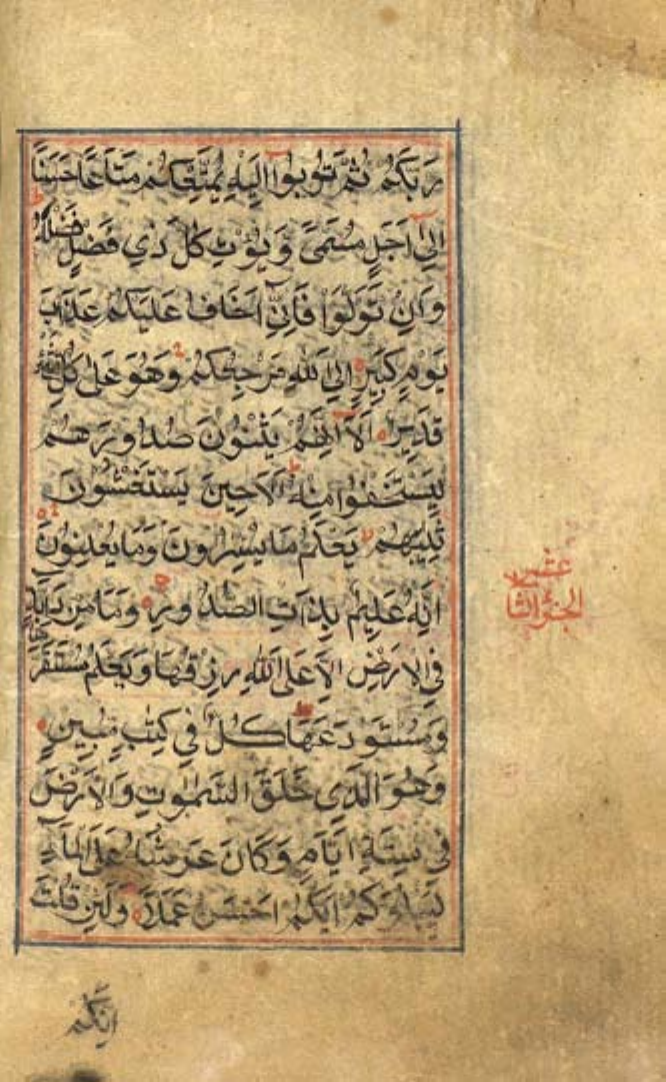 رَبَّكُمْ ثُمَّ تُوبُوٓا اِلَيْهِ يُمَتِّعْكُمْ مَتَاعًا حَسَنًا
اِلٰٓى اَجَلٍ مُسَمًّى وَيُؤْتِ كُلَّ ذِي فَضْلٍ فَضْلَهُ ط
وَاِنْ تَوَلَّوْا فَاِنِّٓي اَخَافُ عَلَيْكُمْ عَذَابَ
يَوْمٍ كَبِيرٍ اِلَى اللّٰهِ مَرْجِعُكُمْ وَهُوَ عَلٰى كُلِّ شَيْءٍ
قَدِيرٌ اَلَٓا اِنَّهُمْ يَثْنُونَ صُدُورَهُمْ
لِيَسْتَخْفُوا مِنْهُ ط اَلَا حِينَ يَسْتَغْشُونَ
ثِيَابَهُمْ يَعْلَمُ مَا يُسِرُّونَ وَمَا يُعْلِنُونَ
اِنَّهُ عَلِيمٌ بِذَاتِ الصُّدُورِ وَمَا مِنْ دَابَّةٍ
فِي الْاَرْضِ اِلَّا عَلَى اللّٰهِ رِزْقُهَا وَيَعْلَمُ مُسْتَقَرَّهَا
وَمُسْتَوْدَعَهَا ط كُلٌّ فِي كِتٰبٍ مُبِينٍ
وَهُوَ الَّذِي خَلَقَ السَّمٰوٰتِ وَالْاَرْضَ
فِي سِتَّةِ اَيَّامٍ وَكَانَ عَرْشُهُ عَلَى الْمَآءِ
لِيَبْلُوَكُمْ اَيُّكُمْ اَحْسَنُ عَمَلًا وَلَئِنْ قُلْتَ
اِنَّكُمْ
الجزؤ الثا
عشر